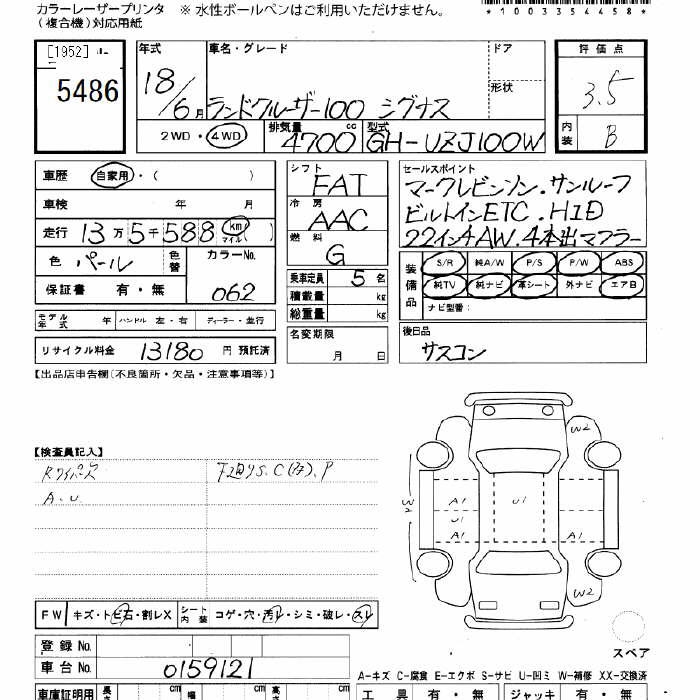 カラーレーザープリンタ ※ 水性ボールペンはご利用いただけません。
（複合機）対応用紙
*1003354458*
[1952]
5486
年式 車名・グレード ドア 評価点
18/6月 ランドクルーザー100 シグナス 形状 3.5
2WD・4WD 排気量 4700cc 型式 GH-UZJ100W 内装 B
車歴 自家用・( ) シフト FAT セールスポイント
マークレビンソン.サンルーフ
車検 年 月 冷房 AAC ビルトインETC.HID
走行 13万5千588 km マイル ( ) 燃料 G 22インチAW.4本出マフラー
色 パール 色替 カラーNo. 062
保証書 有・無
乗車定員 5名
積載量 kg
総重量 kg
装備品 S/R 純A/W P/S P/W ABS
純TV 純ナビ 革シート 外ナビ エアB
ナビ型番：
モデル年式 年 ハンドル 左・右 ディーラー・並行
名変期限 月 日
後日品
サスコン
リサイクル料金 13180 円 預託済
【出品店申告欄(不良箇所・欠品・注意事項等)】
【検査員記入】
A.U.
W2
3A
A1 U1
U1
A1 A1
W2
FW キズ・トビ石・割レX シート内装 コゲ・穴・汚レ・シミ・破レ・スレ
スペア
登録No.
車台No. 0159121
A-キズ C-腐食 E-エクボ S-サビ U-凹ミ W-補修 XX-交換済
車庫証明用 長さ cm 幅 cm 高さ cm 工具 有・無 ジャッキ 有・無